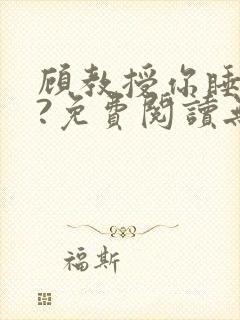 顾教授你睡
?免費閱讀
福斯